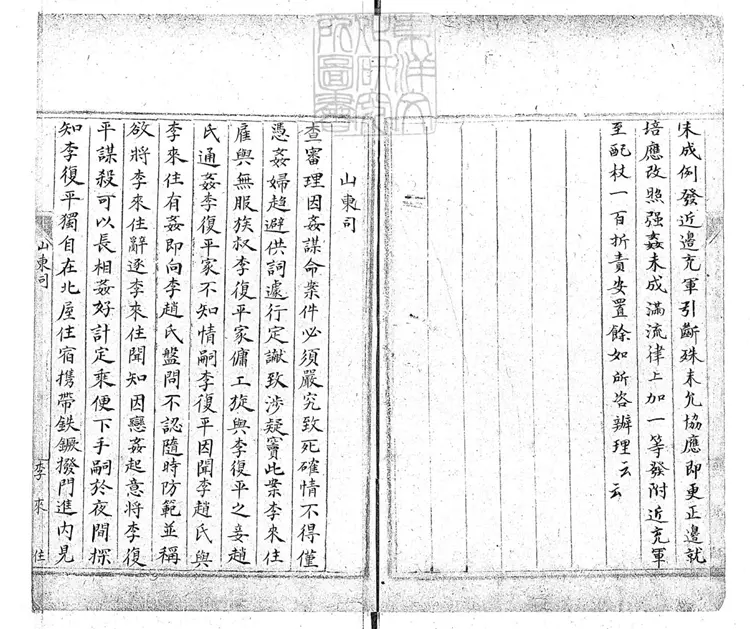 未成例發近邊充軍引斷殊未允協應即更正邊就
培應改照强姦未成滿流律上加一等發附近充軍
至配杖一百折責安置餘如所咨辦理云云
山東司
查審理因姦謀命案件必須嚴究致死確情不得僅
憑姦婦趋避供詞遽行定讞致涉疑竇此案李來住
雇與無服族叔李復平家傭工旋與李復平之妾趙
氏通姦李復平家不知情嗣李復平因聞李趙氏與
李來住有姦即向李趙氏盤問不認隨時防範並稱
欲將李來住辭逐李來住聞知因戀姦起意將李復
平謀殺可以長相姦好計定乘便下手嗣於夜間探
知李復平獨自在北屋住宿携帶鉄鐝撥門進內見
山東司
李來住